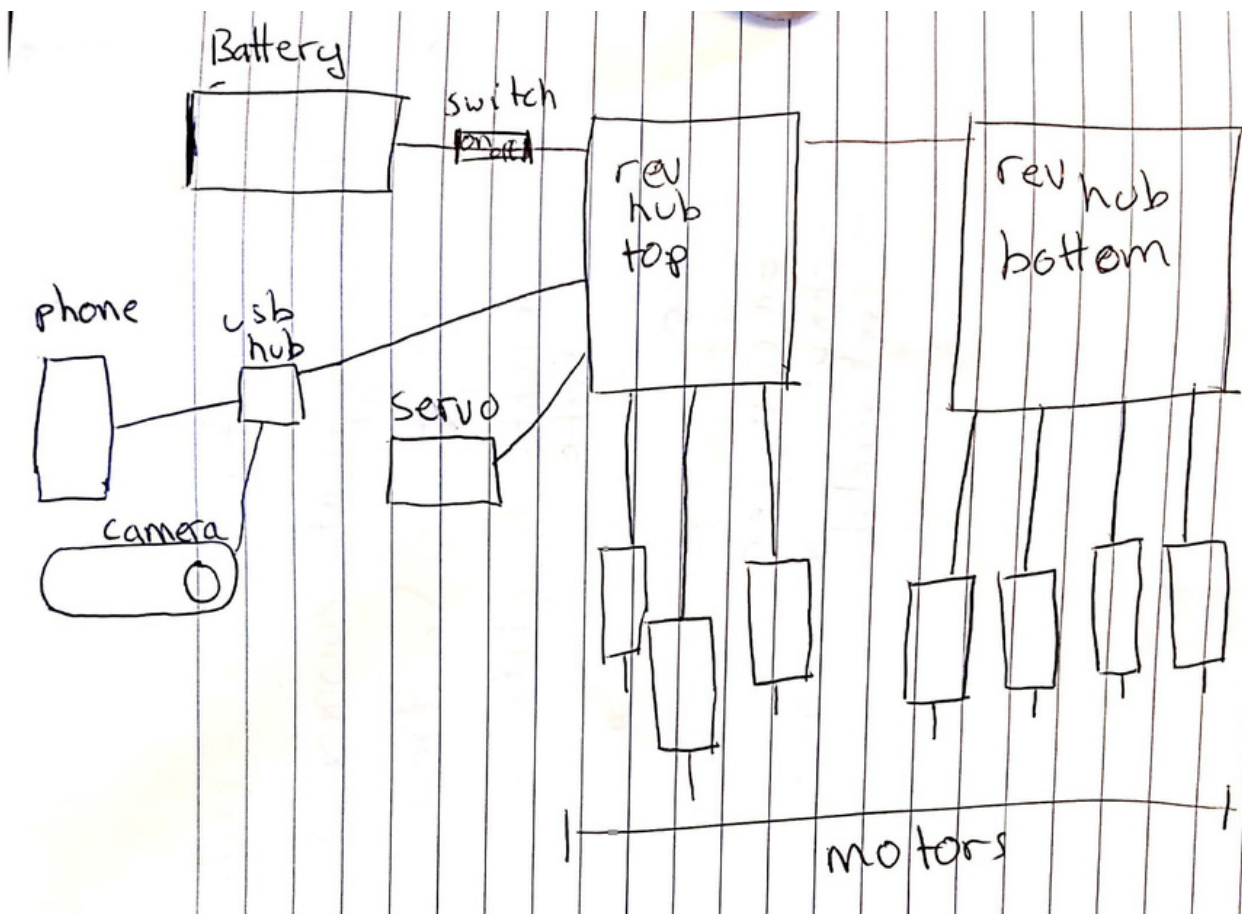 Battery
switch
on off
rev
hub
top
rev hub
bottom
phone
usb
hub
servo
camera
motors